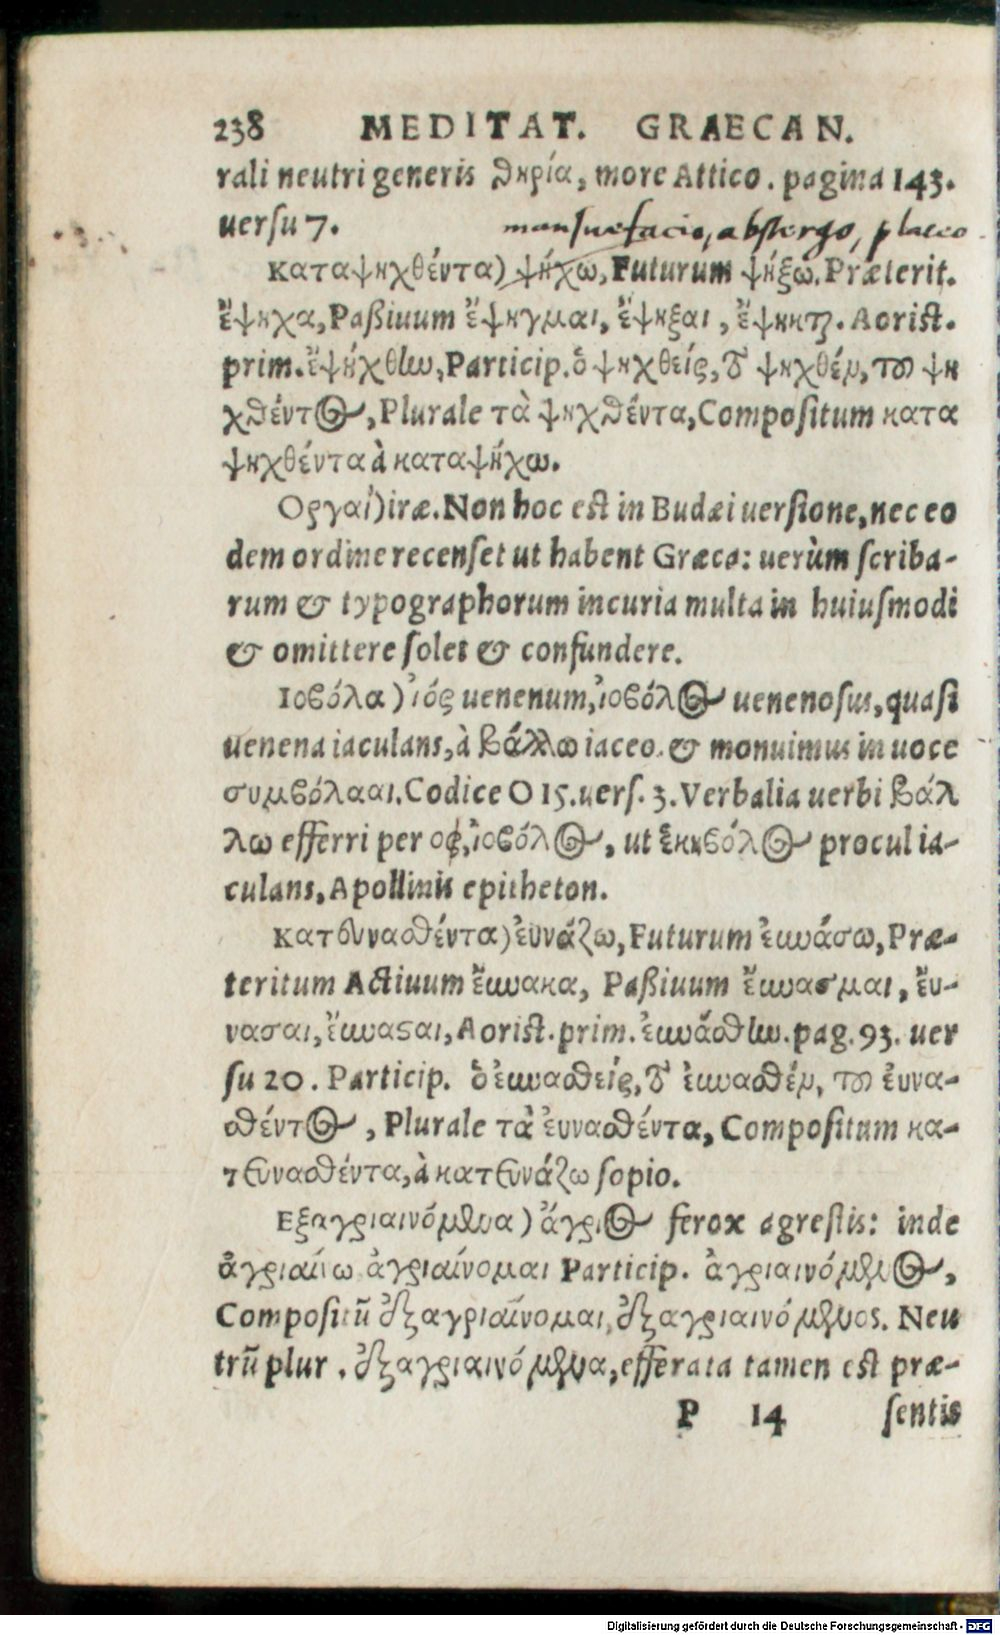 238 MEDITAT. GRAECAN.
rali neutri generis θηρία, more Attico. pagina 143.
uersu 7. mansuefacio, abstergo, placeo
Καταψηχθέντα) ψήχω, Futurum ψήξω. Præterit.
ἔψηχα, Paßiuum ἔψηγμαι, ἔψηξαι, ἔψηκται. Aorist.
prim. ἐψήχθην, Particip. ὁ ψηχθείς, τὸ ψηχθέν, τοῦ ψη
χθέντος, Plurale τὰ ψηχθέντα, Compositum κατα
ψηχθέντα à καταψήχω.
Οργαί) iræ. Non hoc est in Budæi uersione, nec eo
dem ordine recenset ut habent Græca: uerùm scriba-
rum & typographorum incuria multa in huiusmodi
& omittere solet & confundere.
Ιοβόλα) ἰός uenenum, ἰοβόλος uenenosus, quasi
uenena iaculans, à βάλλω iaceo. & monuimus in uoce
συμβόλααι. Codice O 15. uers. 3. Verbalia uerbi βάλ
λω efferri per οφ, ἰοβόλος, ut ἑκηβόλος procul ia-
culans, Apollinis epitheton.
Κατευνασθέντα) ἐυνάζω, Futurum ἐυνάσω, Præ-
teritum Actiuum ἔυνακα, Paßiuum ἔυνασμαι, ἔυ-
νασαι, ἔυνασαι, Aorist. prim. ἐυνάσθην. pag. 93. uer
su 20. Particip. ὁ ἐυνασθείς, τὸ ἐυνασθέν, τοῦ ἐυνα-
σθέντος, Plurale τὰ ἐυνασθέντα, Compositum κα-
τευνασθέντα, à κατευνάζω sopio.
Εξαγριαινόμενα) ἄγριος ferox agrestis: inde
ἀγριαίνω ἀγριαίνομαι Particip. ἀγριαινόμενος,
Compositũ ἐξαγριαίνομαι, ἐξαγριαινόμενος. Neu
trũ plur. ἐξαγριαινόμενα, efferata tamen est præ-
P 14 sentis
Digitalisierung gefördert durch die Deutsche Forschungsgemeinschaft - DFG